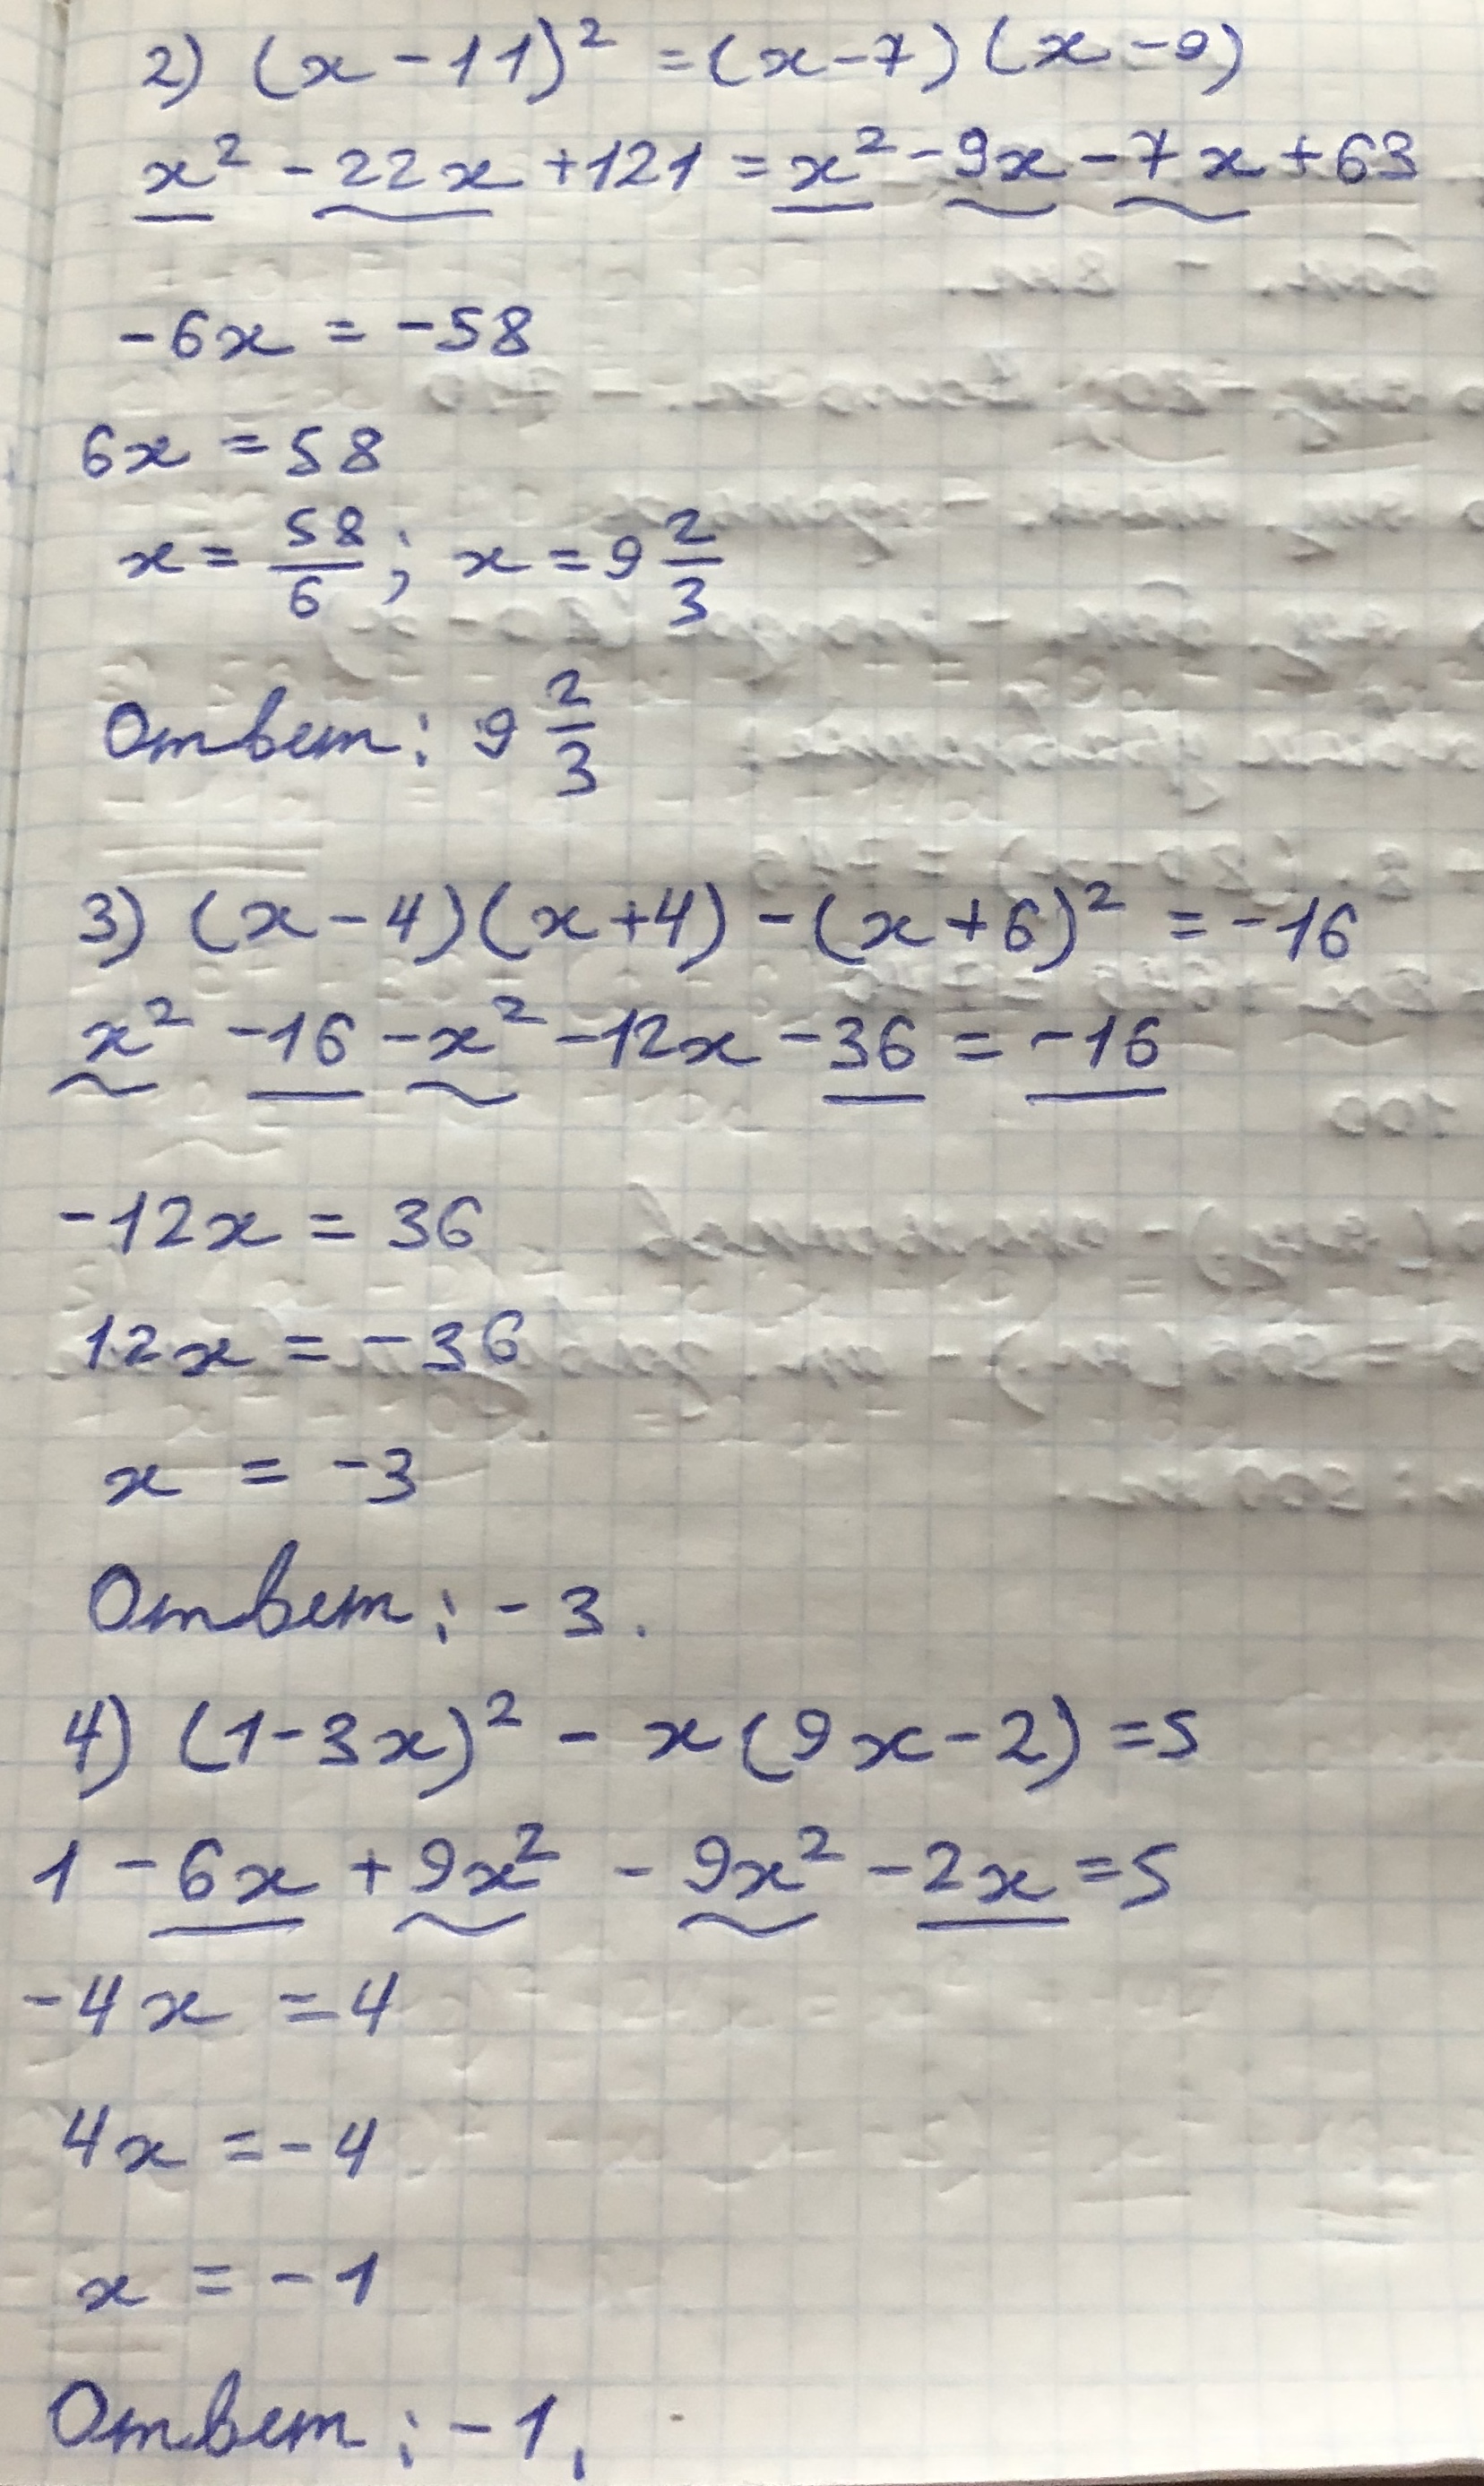 2) (x - 11)² = (x - 7)(x - 9)
x² - 22x + 121 = x² - 9x - 7x + 63
-6x = -58
6x = 58
x = 58/6; x = 9 2/3
Ответ: 9 2/3
3) (x - 4)(x + 4) - (x + 6)² = -16
x² - 16 - x² - 12x - 36 = -16
-12x = 36
12x = -36
x = -3
Ответ: -3.
4) (1 - 3x)² - x(9x - 2) = 5
1 - 6x + 9x² - 9x² - 2x = 5
-4x = 4
4x = -4
x = -1
Ответ: -1.